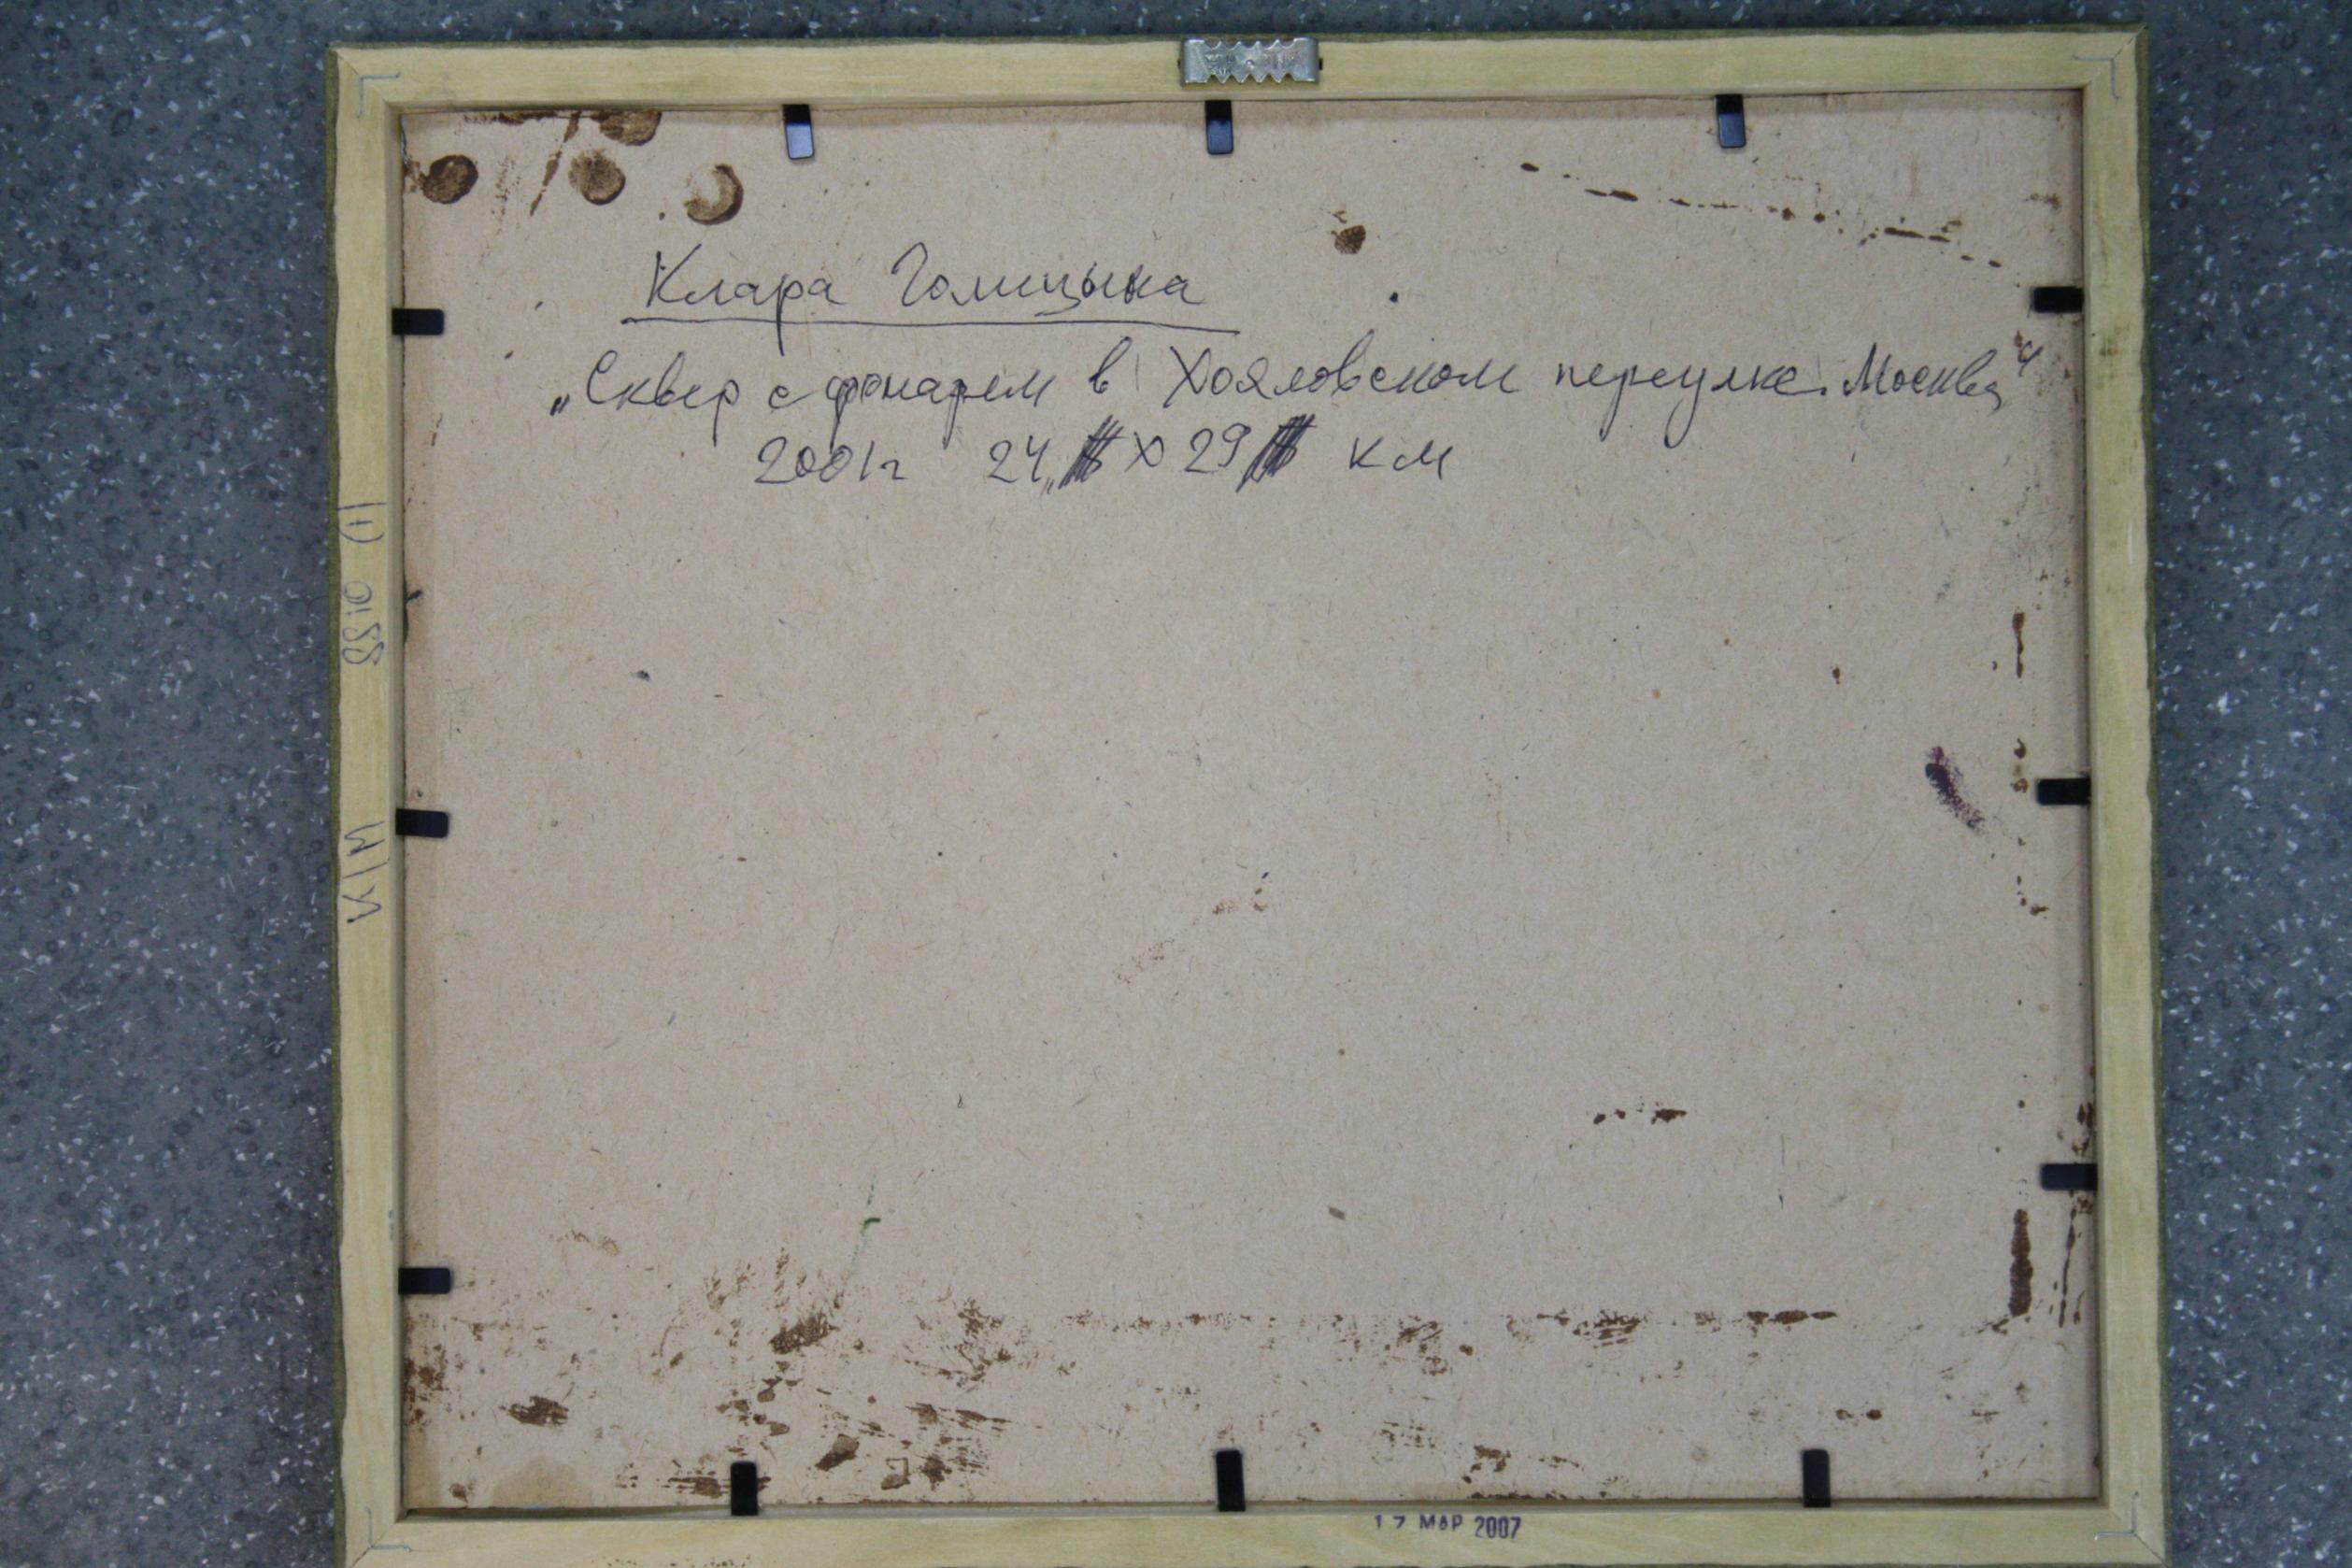 Клара Голицына
„Сквер с фонарем в Хояловском переулке. Москва“
2001г 24 х 29 км
17 МАР 2007